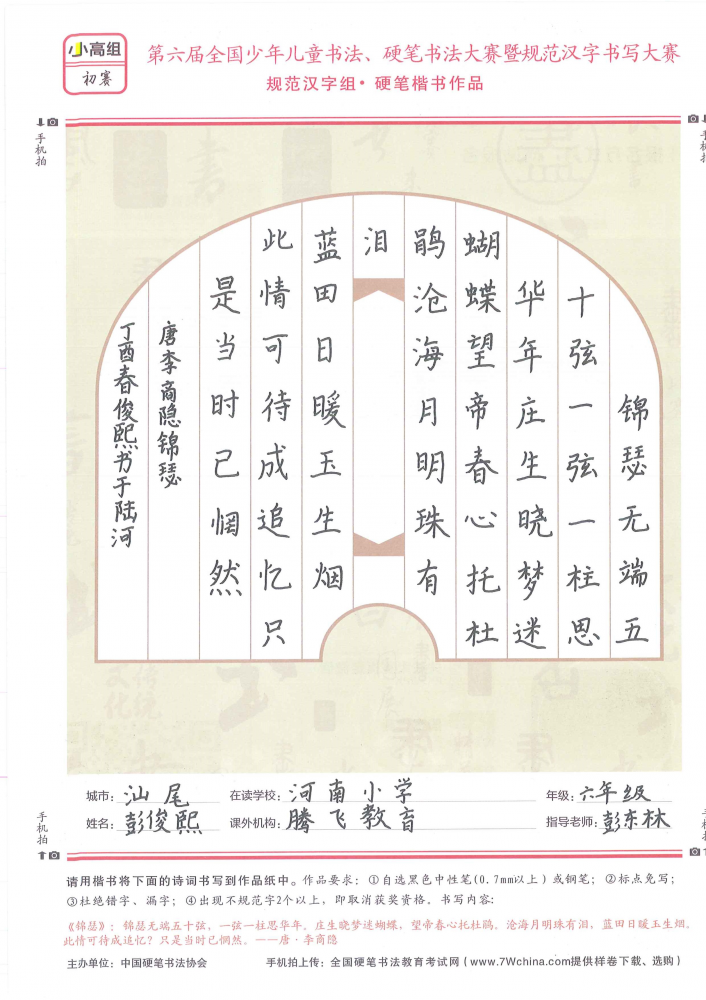 小高组
初赛
第六届全国少年儿童书法、硬笔书法大赛暨规范汉字书写大赛
规范汉字组·硬笔楷书作品
手机拍
手机拍
锦瑟无端五
十弦一弦一柱思
华年庄生晓梦迷
蝴蝶望帝春心托杜
鹃沧海月明珠有
泪
蓝田日暖玉生烟
此情可待成追忆只
是当时已惘然
唐李商隐锦瑟
丁酉春俊熙书于陆河
城市：汕尾 在读学校：河南小学 年级：六年级
姓名：彭俊熙 课外机构：腾飞教育 指导老师：彭东林
手机拍
手机拍
请用楷书将下面的诗词书写到作品纸中。作品要求：①自选黑色中性笔(0.7mm以上)或钢笔；②标点免写；
③杜绝错字、漏字；④出现不规范字2个以上，即取消获奖资格。书写内容：
《锦瑟》：锦瑟无端五十弦，一弦一柱思华年。庄生晓梦迷蝴蝶，望帝春心托杜鹃。沧海月明珠有泪，蓝田日暖玉生烟。
此情可待成追忆？只是当时已惘然。——唐·李商隐
主办单位：中国硬笔书法协会 手机拍上传：全国硬笔书法教育考试网（www.7Wchina.com提供样卷下载、选购）